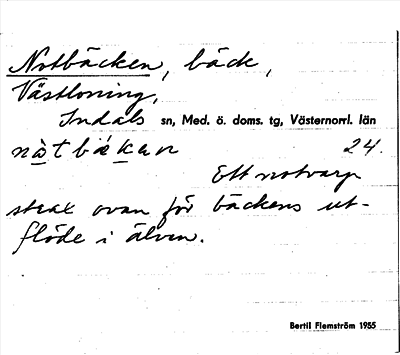 Notbäcken, bäck,
Västloning,
Indals sn, Med. ö. doms. tg, Västernorrl. län
nò̱t bä̱ḵen 24.
Ett notvarp
strax ovan för bäckens ut-
flöde i älven.
Bertil Flemström 1955